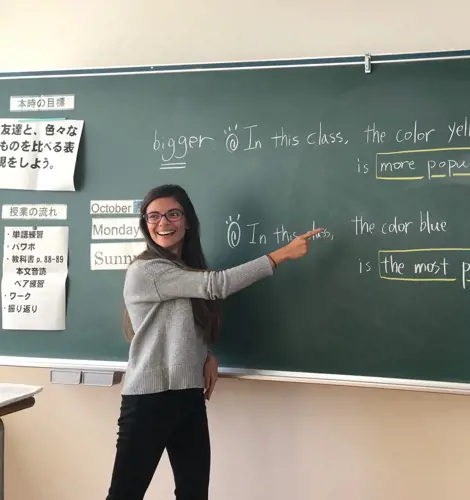 本時の目標
友達と、色々な
ものを比べる表
現をしよう。
授業の流れ
・単語練習
・パワポ
・教科書 p. 88-89
本文音読
ペア練習
・ワーク
・振り返り
October
Monday
Sunn
bigger
@ In this class, the color yel
is more popu
@ In this class, the color blue
is the most p